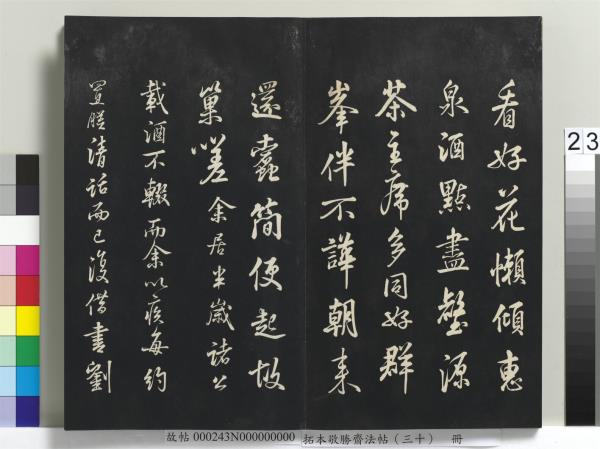 看好花懶傾惠
泉酒點盡壑源
茶主席多同好群
峯伴不譁朝来
還蠹簡便起故
巢嗟余居半歲諸公
載酒不輟而余以疾每約
置膳清話而已復借書劉
故帖 000243N000000000
拓本敬勝齋法帖（三十） 冊
23